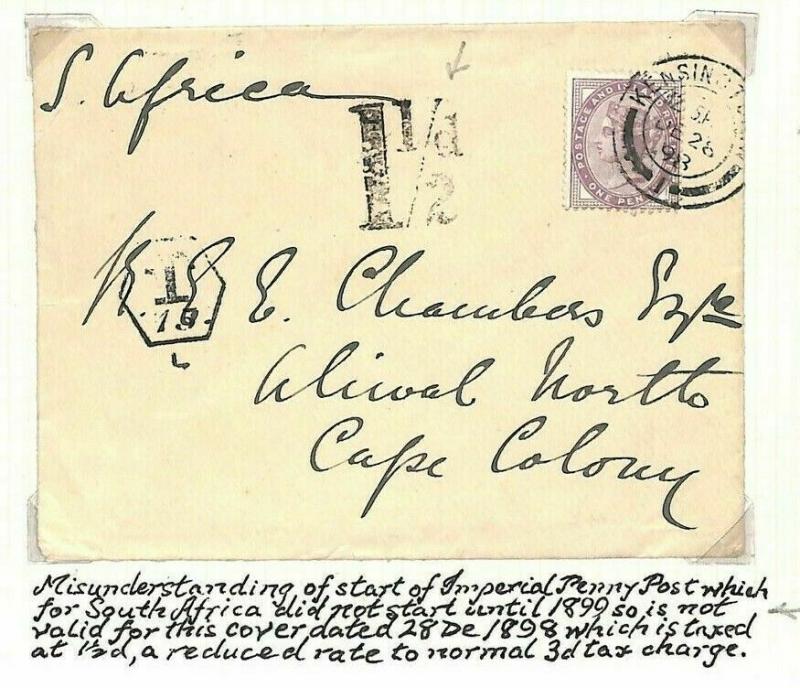 S. Africa
1 1/2 d
KENSINGTON
28
98
POSTAGE AND INLAND REVENUE
ONE PENNY
T
19.
E. Chambers Esqre
Aliwal North
Cape Colony
Misunderstanding of start of Imperial Penny Post which
for South Africa did not start until 1899 so is not
valid for this cover dated 28 De 1898 which is taxed
at 1½d, a reduced rate to normal 3d tax charge.